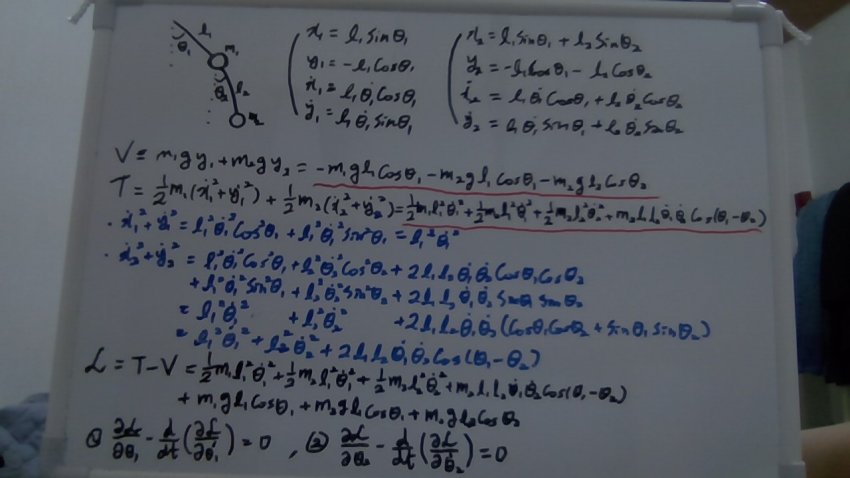 θ₁ l₁ m₁
θ₂ l₂ m₂
x₁ = l₁ sinθ₁
y₁ = -l₁ cosθ₁
ẋ₁ = l₁ θ̇₁ cosθ₁
ẏ₁ = l₁ θ̇₁ sinθ₁
x₂ = l₁ sinθ₁ + l₂ sinθ₂
y₂ = -l₁ cosθ₁ - l₂ cosθ₂
ẋ₂ = l₁ θ̇₁ cosθ₁ + l₂ θ̇₂ cosθ₂
ẏ₂ = l₁ θ̇₁ sinθ₁ + l₂ θ̇₂ sinθ₂
V = m₁gy₁ + m₂gy₂ = -m₁gl₁cosθ₁ - m₂gl₁cosθ₁ - m₂gl₂cosθ₂
T = ½m₁(ẋ₁² + ẏ₁²) + ½m₂(ẋ₂² + ẏ₂²) = ½m₁l₁²θ̇₁² + ½m₂l₁²θ̇₁² + ½m₂l₂²θ̇₂² + m₂l₁l₂θ̇₁θ̇₂cos(θ₁-θ₂)
· ẋ₁² + ẏ₁² = l₁²θ̇₁²cos²θ₁ + l₁²θ̇₁²sin²θ₁ = l₁²θ̇₁²
· ẋ₂² + ẏ₂² = l₁²θ̇₁²cos²θ₁ + l₂²θ̇₂²cos²θ₂ + 2l₁l₂θ̇₁θ̇₂cosθ₁cosθ₂
+ l₁²θ̇₁²sin²θ₁ + l₂²θ̇₂²sin²θ₂ + 2l₁l₂θ̇₁θ̇₂sinθ₁sinθ₂
= l₁²θ̇₁² + l₂²θ̇₂² + 2l₁l₂θ̇₁θ̇₂(cosθ₁cosθ₂ + sinθ₁sinθ₂)
= l₁²θ̇₁² + l₂²θ̇₂² + 2l₁l₂θ̇₁θ̇₂cos(θ₁-θ₂)
ℒ = T-V = ½m₁l₁²θ̇₁² + ½m₂l₁²θ̇₁² + ½m₂l₂²θ̇₂² + m₂l₁l₂θ̇₁θ̇₂cos(θ₁-θ₂)
+ m₁gl₁cosθ₁ + m₂gl₁cosθ₁ + m₂gl₂cosθ₂
① ∂ℒ/∂θ₁ - d/dt(∂ℒ/∂θ̇₁) = 0 , ② ∂ℒ/∂θ₂ - d/dt(∂ℒ/∂θ̇₂) = 0